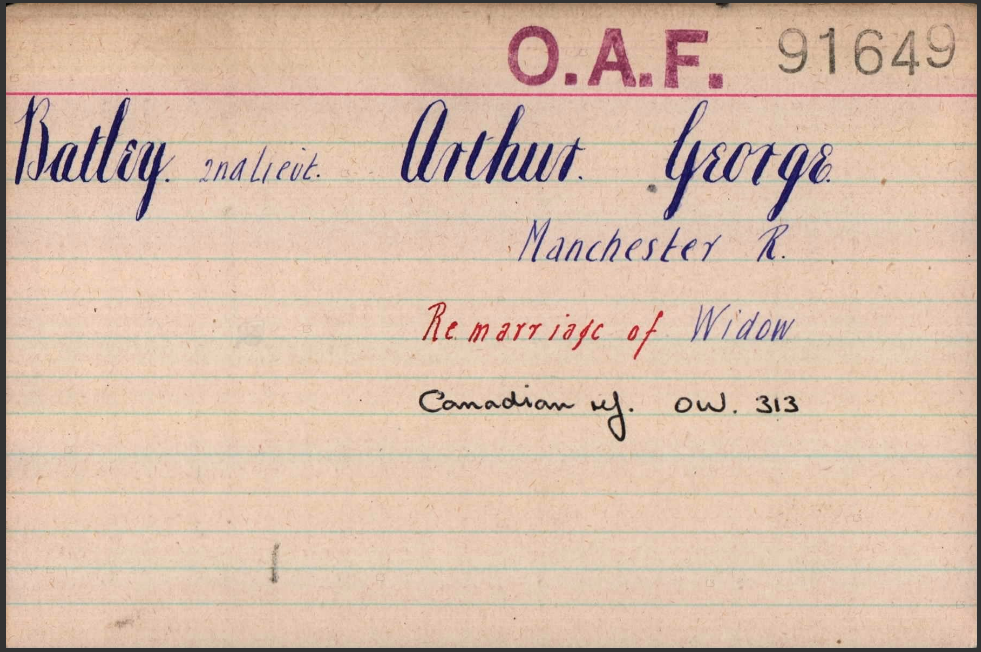 O.A.F. 91649
Batley. 2nd Lieut. Arthur. George.
Manchester R.
Remarriage of Widow
Canadian ref. OW. 313